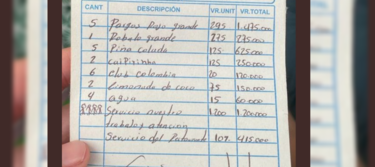 CANT DESCRIPCIÓN VR.UNIT VR.TOTAL
5 Pargos Rojo grande 295 1.475.000
1 Robalo grande 275 275.000
5 Piña colada 125 625.000
2 caipirinha 125 250.000
6 Club Colombia 20 120.000
2 Limonada de coco 75 150.000
4 agua 15 60.000
Servicio nuestro 1200 1.200.000
atencion
Servicio del 10% 415.000